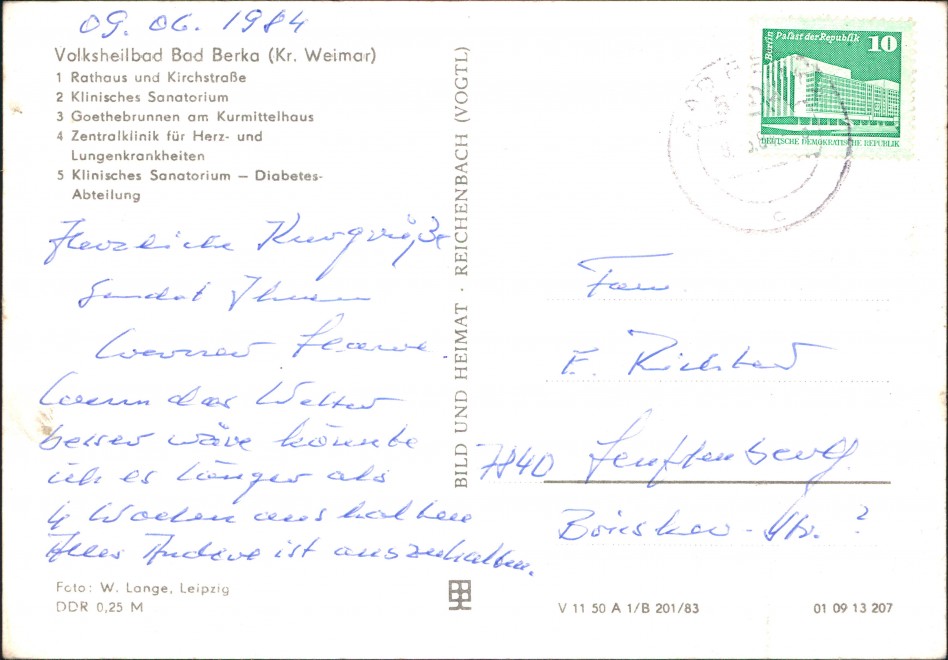 09. 06. 1984
Volksheilbad Bad Berka (Kr. Weimar)
1 Rathaus und Kirchstraße
2 Klinisches Sanatorium
3 Goethebrunnen am Kurmittelhaus
4 Zentralklinik für Herz- und
Lungenkrankheiten
5 Klinisches Sanatorium – Diabetes-
Abteilung
Herzliche Kurgrüße
sendet Ihnen
Werner
Wenn das Wetter
besser wäre könnte
ich es länger als
4 Wochen aushalten
Alles Andere ist auszuhalten.
Foto: W. Lange, Leipzig
DDR 0,25 M
BILD UND HEIMAT · REICHENBACH (VOGTL)
Berlin Palast der Republik
10
DEUTSCHE DEMOKRATISCHE REPUBLIK
c
Frau
E.
7840 Senftenberg
-Str. ?
V 11 50 A 1/B 201/83
01 09 13 207